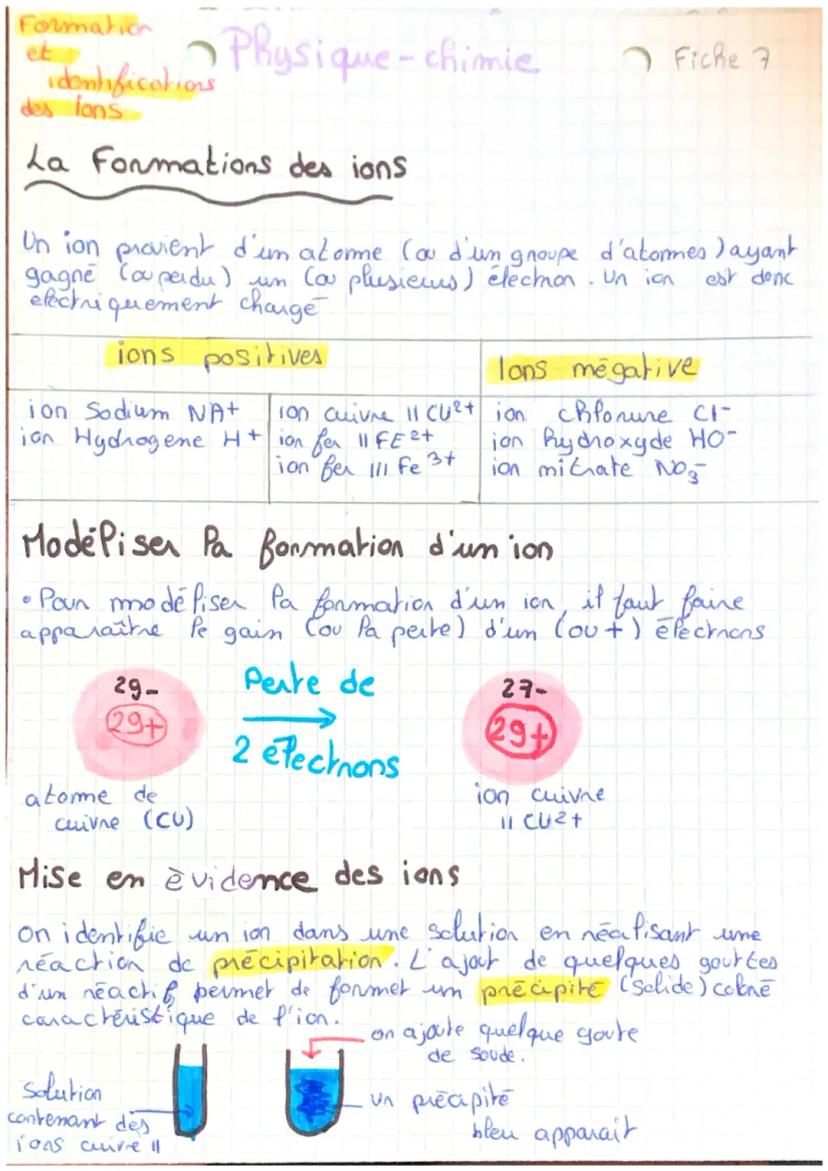 Formation
et
identifications
des ions
Physique-chimie
Fiche 7
La Formations des ions
Un ion provient d'un atome (ou d'un groupe d'atomes) ayant
gagné (ou perdu) un (ou plusieurs) électron. Un ion est donc
electriquement chargé
ions positives
Ions négative
ion Sodium NA+
ion Hydrogene H+
ion cuivre II CU2+
ion fer II FE2+
ion fer III Fe3+
ion chlorure Cl-
ion hydroxyde HO-
ion nitrate NO3-
Modéliser la formation d'un ion
• Pour modéliser la formation d'un ion, il faut faire
apparaître le gain (ou la perte) d'un (ou +) électrons
29-
29+
Perte de
2 électrons
27-
29+
atome de
cuivre (CU)
ion cuivre
II CU2+
Mise en èvidence des ions
On identifie un ion dans une solution en réalisant une
réaction de précipitation. L'ajout de quelques gouttes
d'un réactif permet de formet un précipité (solide) coloré
caractéristique de l'ion.
on ajoute quelque goute
de soude.
Solution
contenant des
ions cuivre II
un précipité
bleu apparait